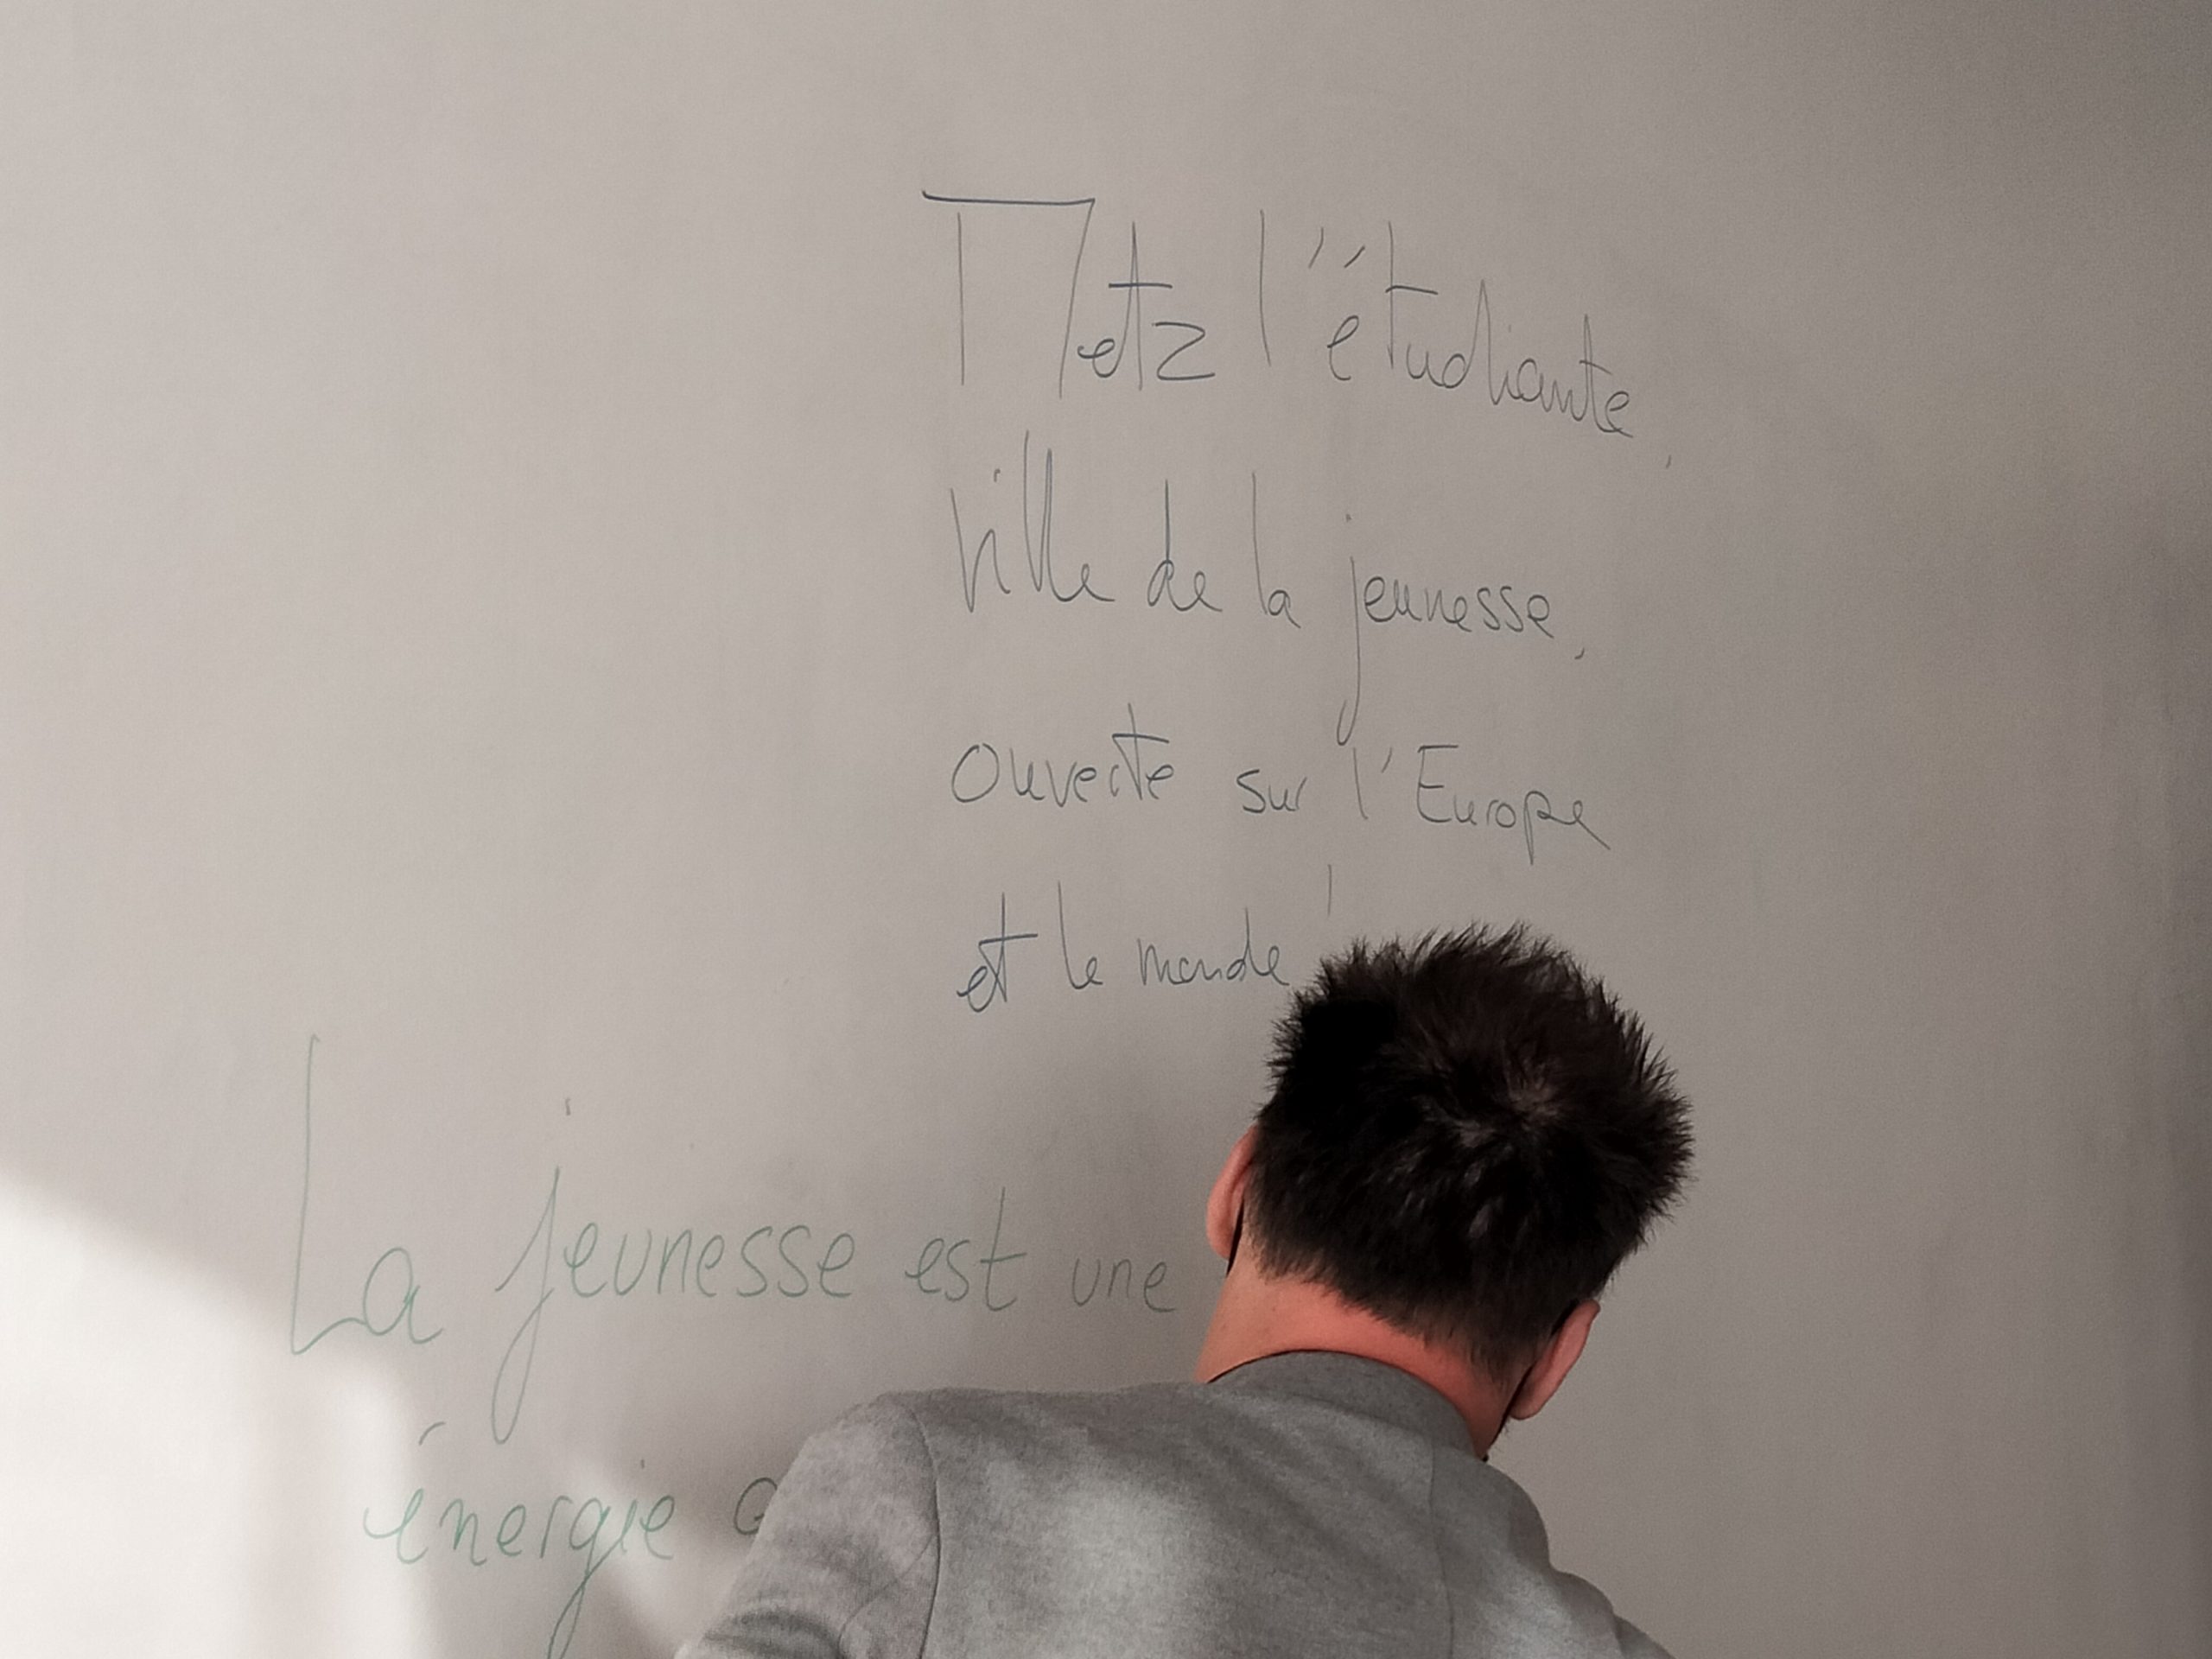 Metz l'étudiante,
ville de la jeunesse,
ouverte sur l'Europe
et le monde !
La jeunesse est une
énergie